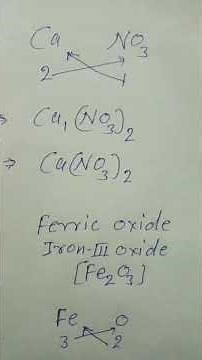 Ca NO₃
2 1
⇒ Ca₁(NO₃)₂
⇒ Ca(NO₃)₂
Ferric oxide
Iron-III oxide
[Fe₂O₃]
Fe O
3 2